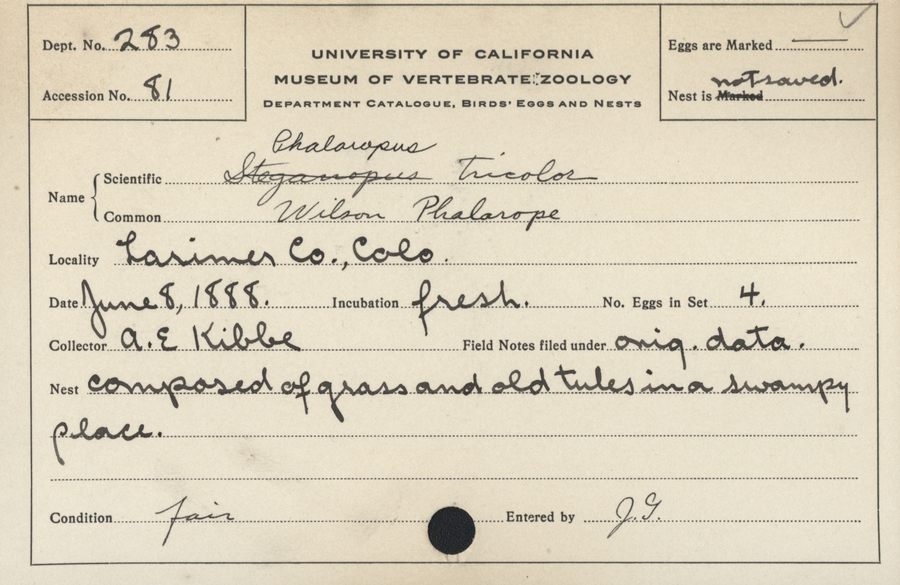 Dept. No. 283
Accession No. 81
UNIVERSITY OF CALIFORNIA
MUSEUM OF VERTEBRATE ZOOLOGY
DEPARTMENT CATALOGUE, BIRDS' EGGS AND NESTS
Eggs are Marked —— ✓
not saved.
Nest is Marked
Phalaropus
Name
Scientific Steganopus tricolor
Common Wilson Phalarope
Locality Larimer Co., Colo.
Date June 8, 1888. Incubation fresh. No. Eggs in Set 4.
Collector A. E Kibbe Field Notes filed under orig. data.
Nest composed of grass and old tules in a swampy
place.
Condition fair Entered by J.G.